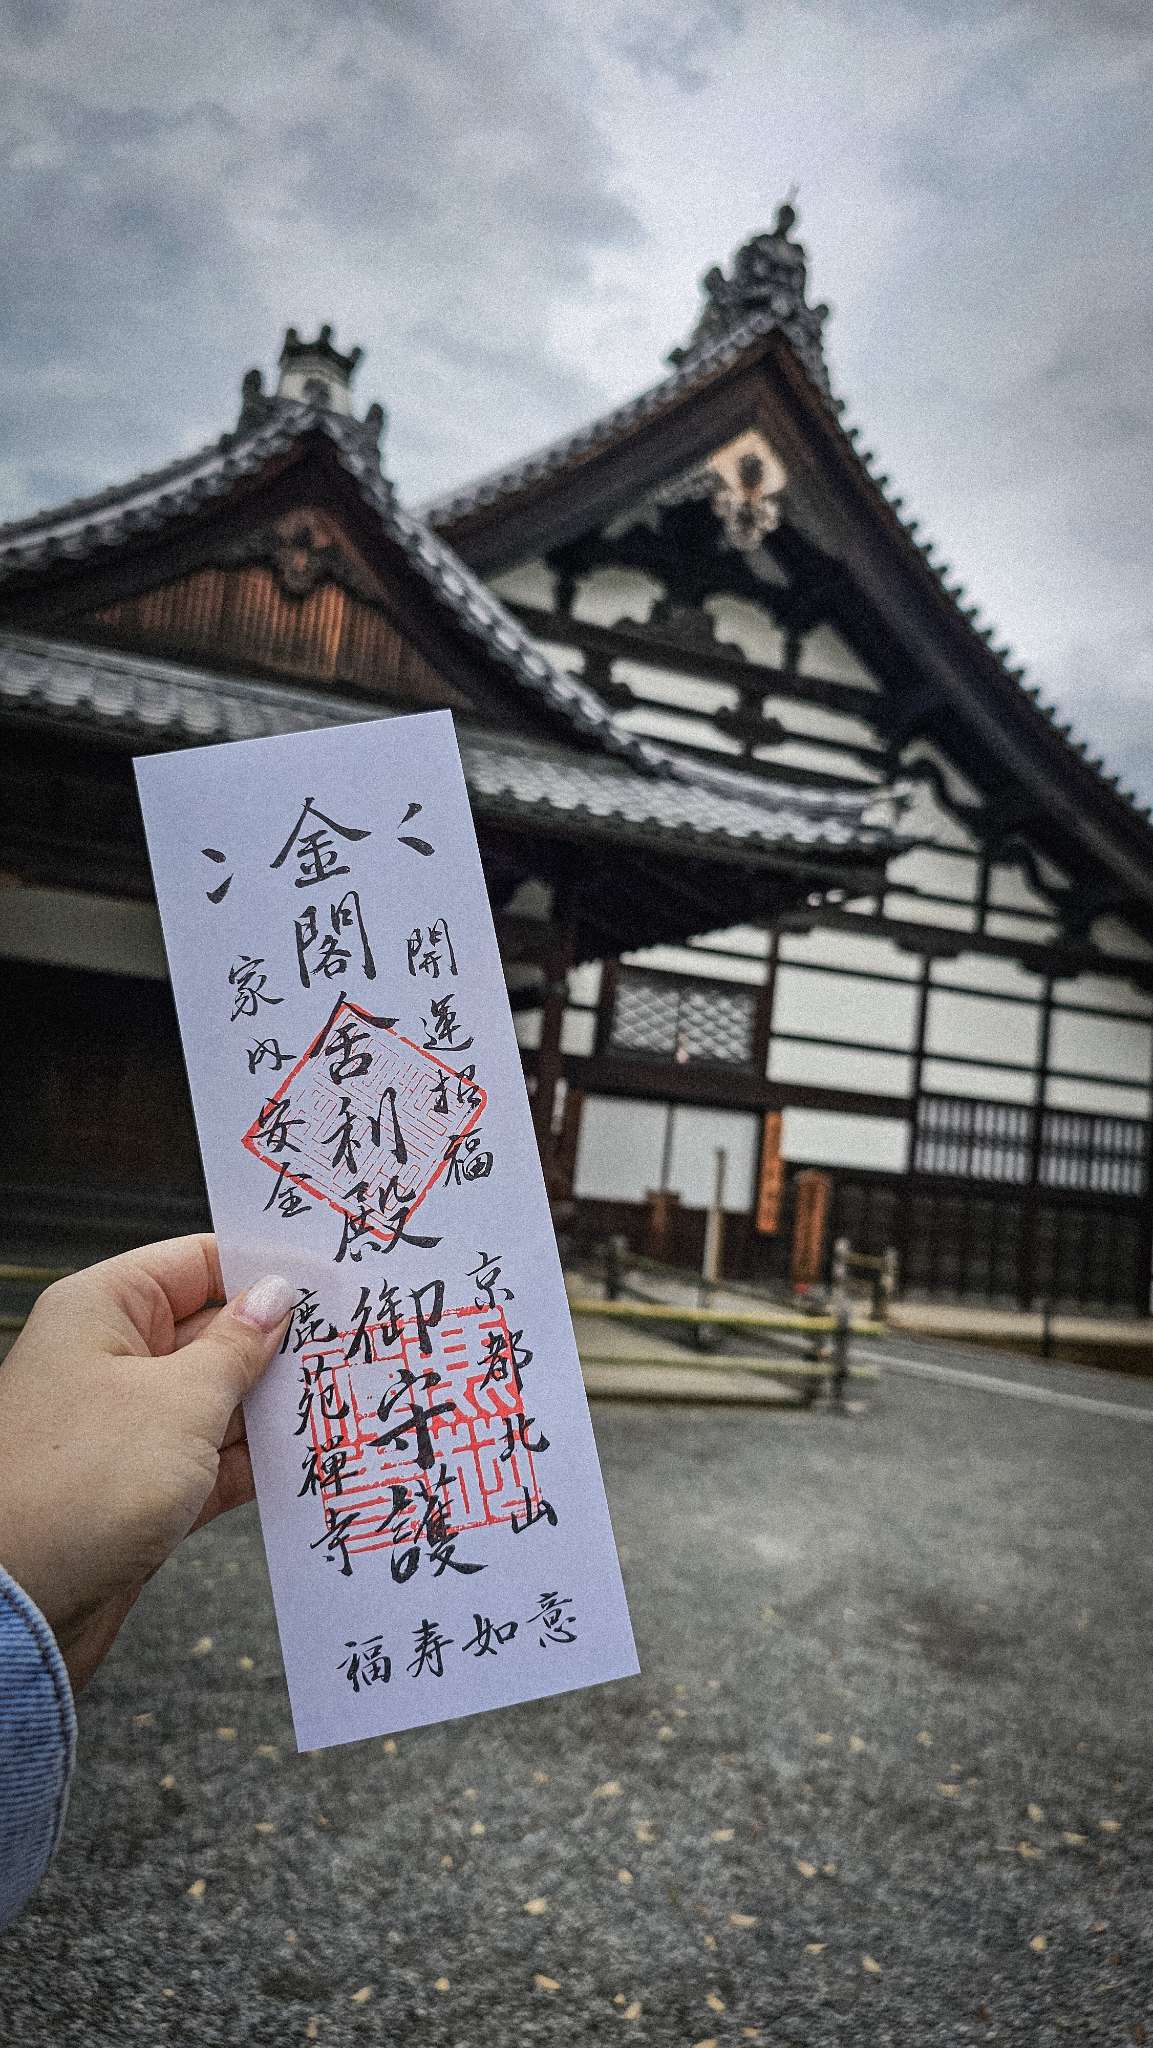 金閣舎利殿御守護
開運招福
京都北山
家内安全
鹿苑禅寺
福寿如意